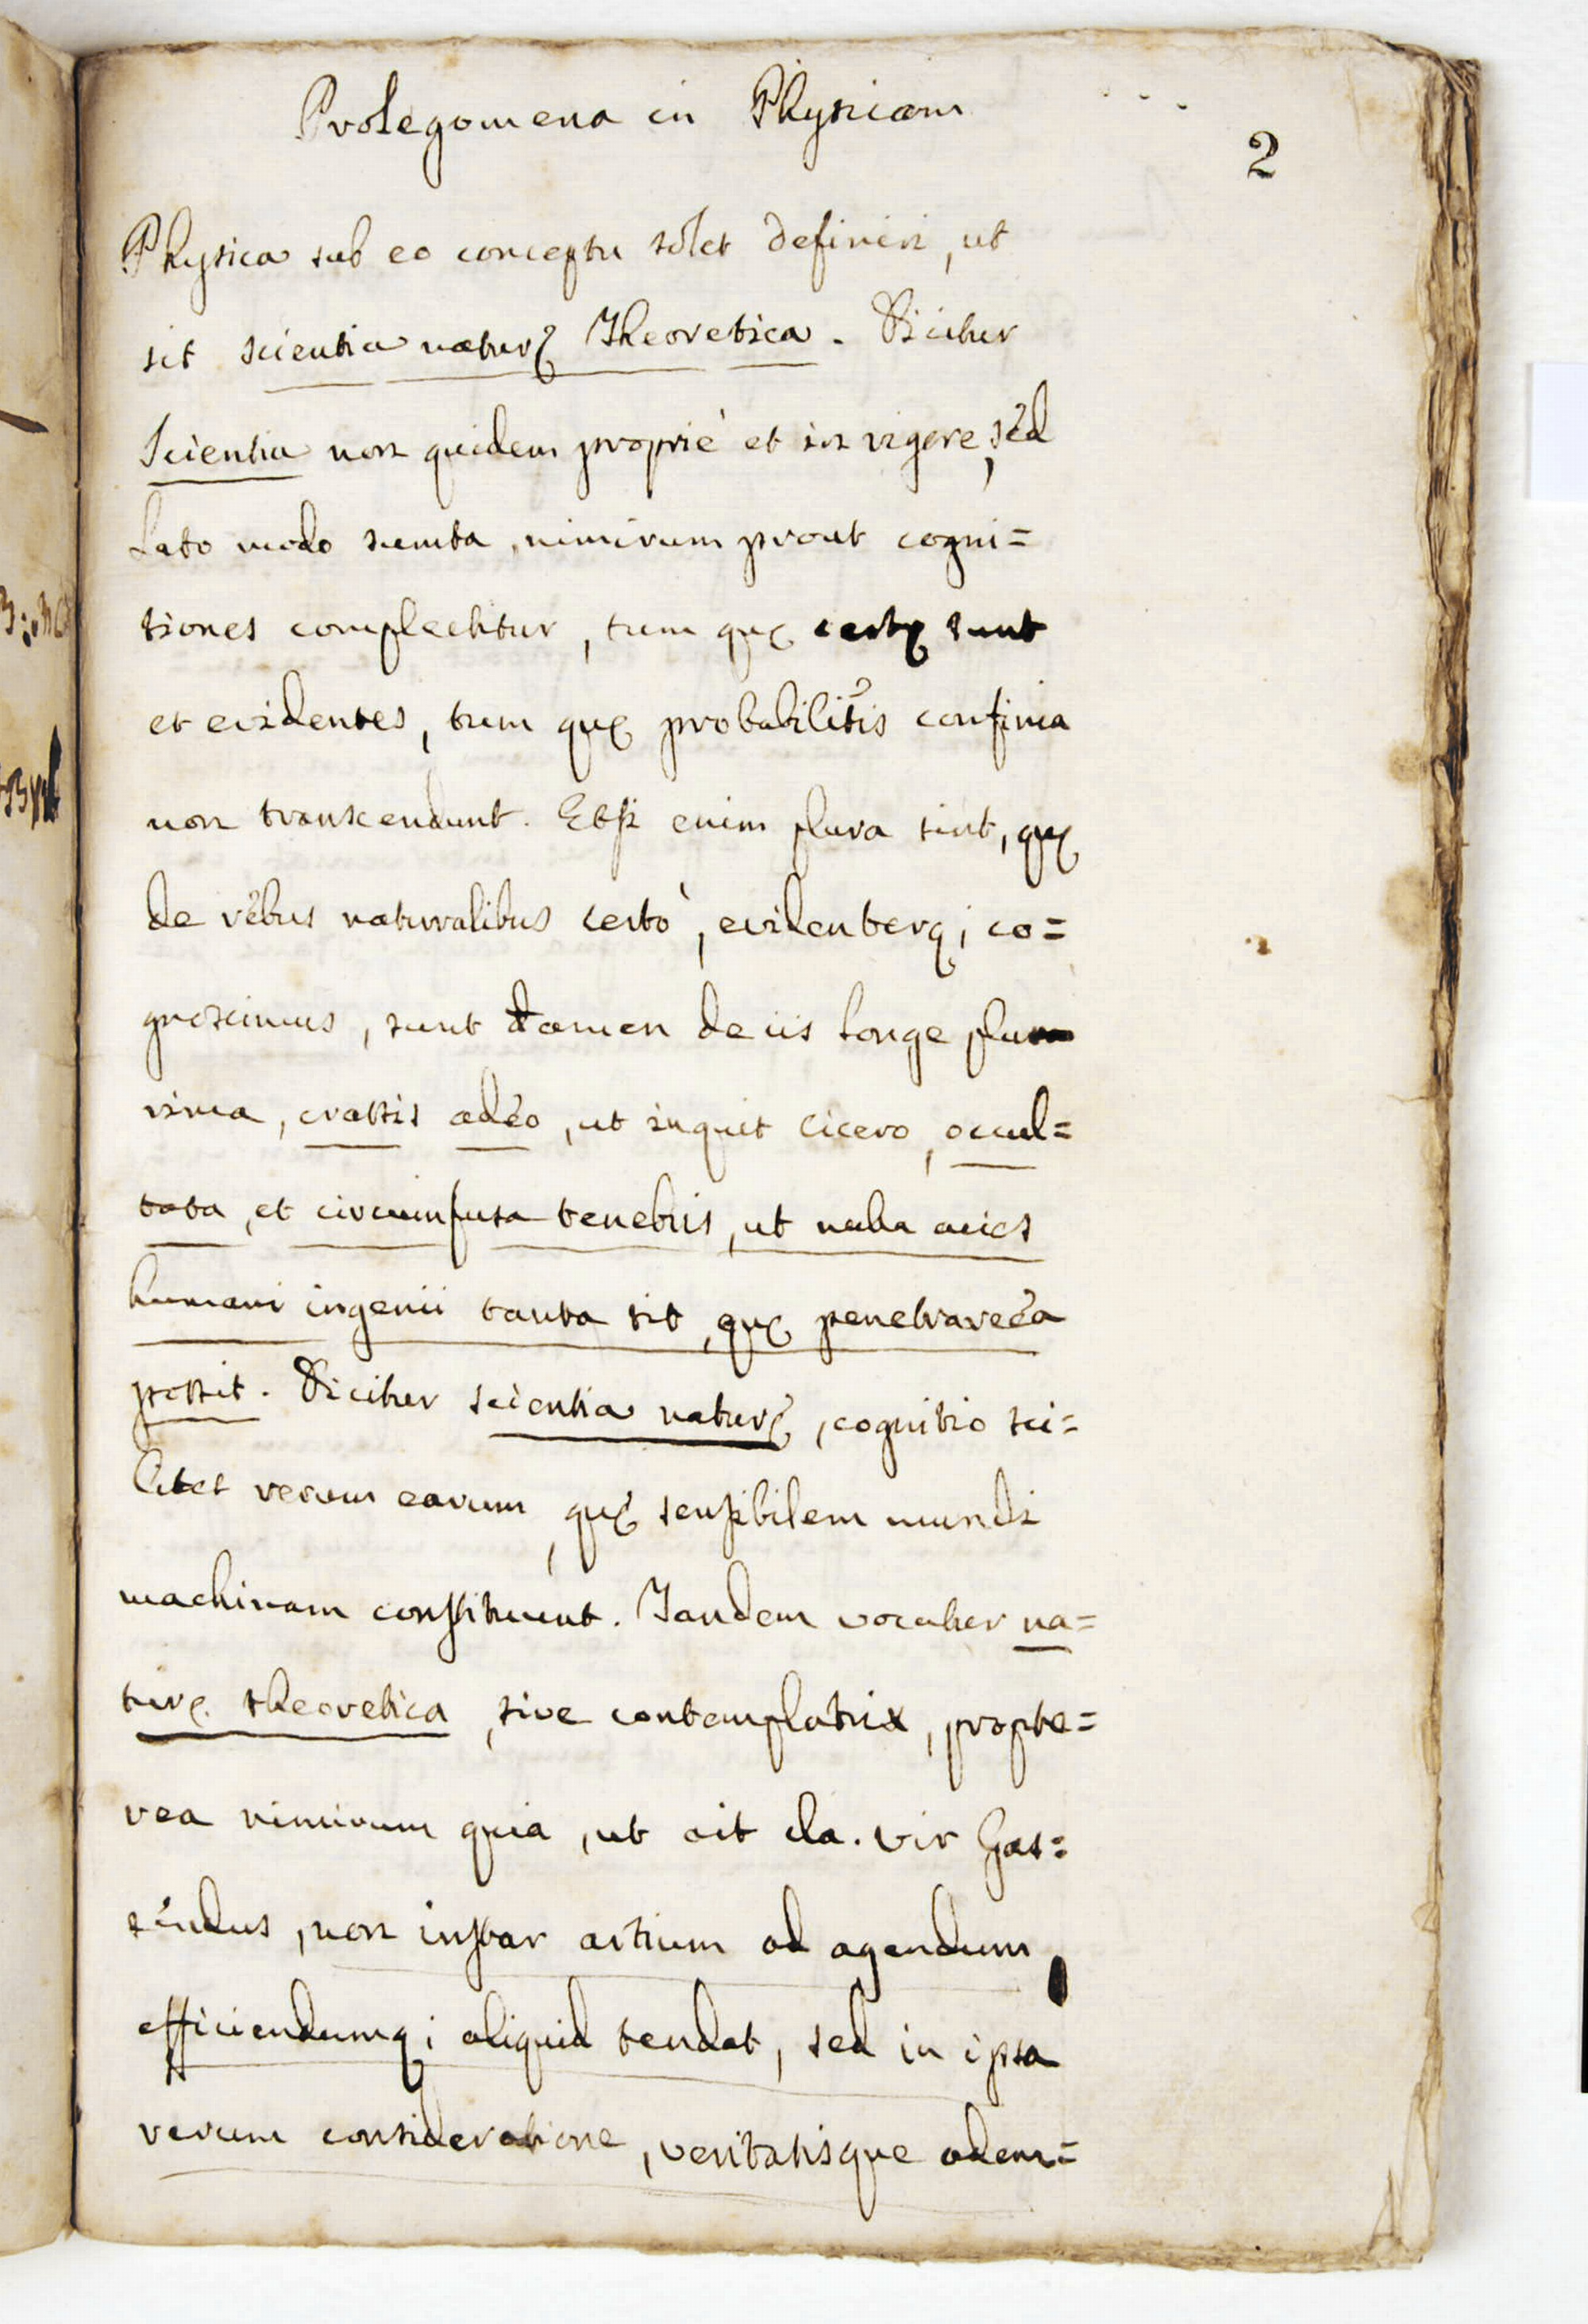 Prolegomena in Physicam
2
Physica sub eo conceptu solet definiri, ut
sit scientia naturę Theoretica. Dicitur
Scientia non quidem propriè et in rigore, sed
Lato modo sumta, nimirum prout cogni=
tiones complectitur, tum quę certę sunt
et evidentes, tum quę probabilitis confinia
non transcendunt. Etsi enim plura sint, quę
de rebus naturalibus certò, evidenterq; co=
gnoscimus, sunt tamen de iis longe plu
rima, crassis adeo, ut inquit Cicero, occul=
tata, et circumfusa tenebris, ut nulla acies
humani ingenii tanta sit, quę penetrare ea
possit. Dicitur scientia naturę, cognitio sci=
licet rerum earum, quę sensibilem mundi
machinam constituunt. Tandem vocatur na=
turę theoretica, sive contemplatrix, propte=
rea nimirum quia, ut ait cla. vir Gas=
sendus, non instar artium ad agendum,
efficiendumq; aliquid tendat, sed in ipsa
rerum consideratione, veritatisque adem=